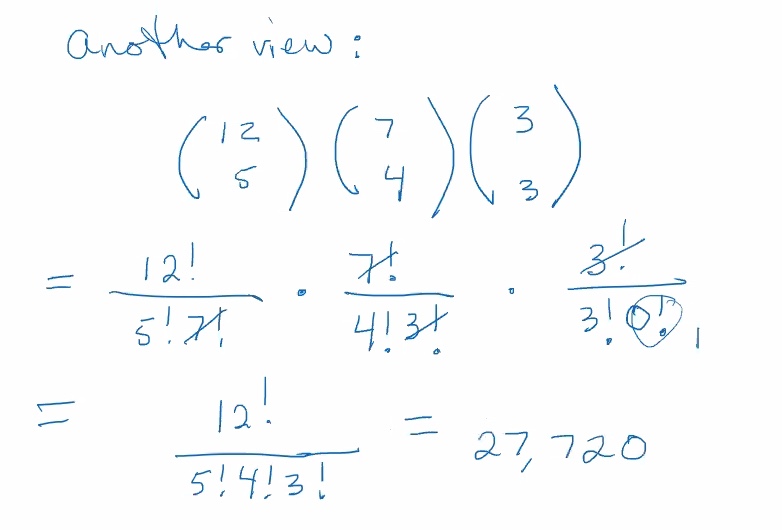 another view:
(12 5) (7 4) (3 3)
= 12!/5!7! · 7!/4!3! · 3!/3!0! 1
= 12!/5!4!3! = 27,720